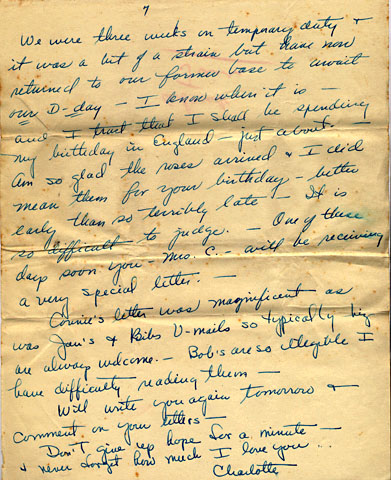 7
We were three weeks on temporary duty &
it was a bit of a strain but have now
returned to our former base to await
our D-day — I know when it is —
and I trust that I shall be spending
my birthday in England — just about. —
Am so glad the roses arrived & I did
mean them for your birthday — better
early than so terribly late — It is
so difficult to judge. — One of these
days soon you — Mrs. C. — will be receiving
a very special letter. —
Connie's letter was magnificent as
was Jan's & Bibs V-mails so typically
are always welcome. — Bob's are so illegible I
have difficulty reading them —
Will write you again tomorrow &
comment on your letters —
Don't give up hope for a minute —
& never forget how much I love you ...
Charlotte